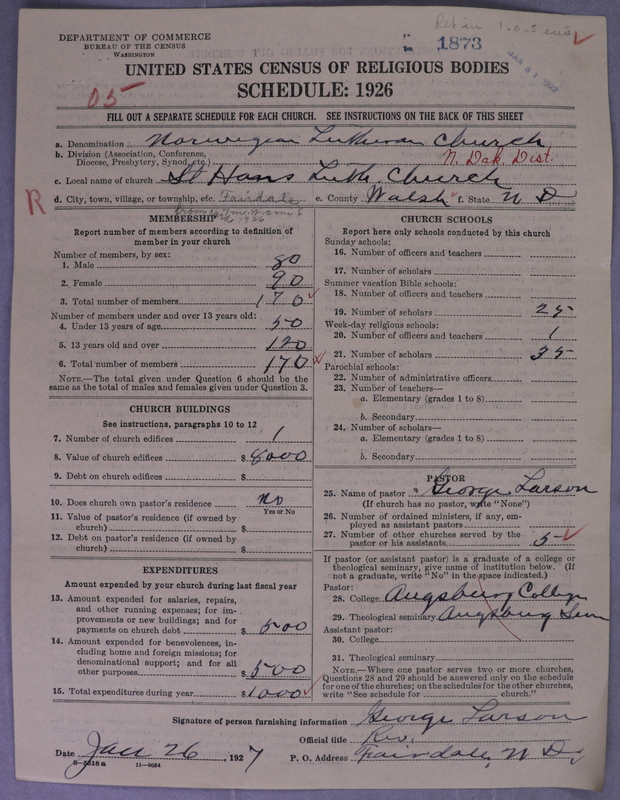 DEPARTMENT OF COMMERCE
BUREAU OF THE CENSUS
WASHINGTON
1873
UNITED STATES CENSUS OF RELIGIOUS BODIES
SCHEDULE: 1926
05
FILL OUT A SEPARATE SCHEDULE FOR EACH CHURCH. SEE INSTRUCTIONS ON THE BACK OF THIS SHEET
a. Denomination Norwegian Lutheran Church
b. Division (Association, Conference, Diocese, Presbytery, Synod, etc.) N. Dak. Dist.
c. Local name of church St Hans Luth Church
R
d. City, town, village, or township, etc. Fairdale e. County Walsh f. State N D
MEMBERSHIP
Report number of members according to definition of member in your church
Number of members, by sex:
1. Male 80
2. Female 90
3. Total number of members 170
Number of members under and over 13 years old:
4. Under 13 years of age 50
5. 13 years old and over 120
6. Total number of members 170
NOTE.—The total given under Question 6 should be the same as the total of males and females given under Question 3.
CHURCH BUILDINGS
See instructions, paragraphs 10 to 12
7. Number of church edifices 1
8. Value of church edifices $ 8000
9. Debt on church edifices $
10. Does church own pastor's residence No
Yes or No
11. Value of pastor's residence (if owned by church) $
12. Debt on pastor's residence (if owned by church) $
EXPENDITURES
Amount expended by your church during last fiscal year
13. Amount expended for salaries, repairs, and other running expenses; for improvements or new buildings; and for payments on church debt $ 500
14. Amount expended for benevolences, including home and foreign missions; for denominational support; and for all other purposes $ 500
15. Total expenditures during year $ 1000
CHURCH SCHOOLS
Report here only schools conducted by this church
Sunday schools:
16. Number of officers and teachers
17. Number of scholars
Summer vacation Bible schools:
18. Number of officers and teachers
19. Number of scholars 25
Week-day religious schools:
20. Number of officers and teachers 1
21. Number of scholars 35
Parochial schools:
22. Number of administrative officers
23. Number of teachers—
a. Elementary (grades 1 to 8)
b. Secondary
24. Number of scholars—
a. Elementary (grades 1 to 8)
b. Secondary
PASTOR
25. Name of pastor George Larson
(If church has no pastor, write "None")
26. Number of ordained ministers, if any, employed as assistant pastors
27. Number of other churches served by the pastor or his assistants 5
If pastor (or assistant pastor) is a graduate of a college or theological seminary, give name of institution below. (If not a graduate, write "No" in the space indicated.)
Pastor:
28. College Augsburg College
29. Theological seminary Augsburg Sem
Assistant pastor:
30. College
31. Theological seminary
NOTE.—Where one pastor serves two or more churches, Questions 28 and 29 should be answered only on the schedule for one of the churches; on the schedules for the other churches, write "See schedule for church."
Signature of person furnishing information George Larson
Official title Rev.
Date Jan 26, 1927 P. O. Address Fairdale, N D.
8-5518 a 11-9084